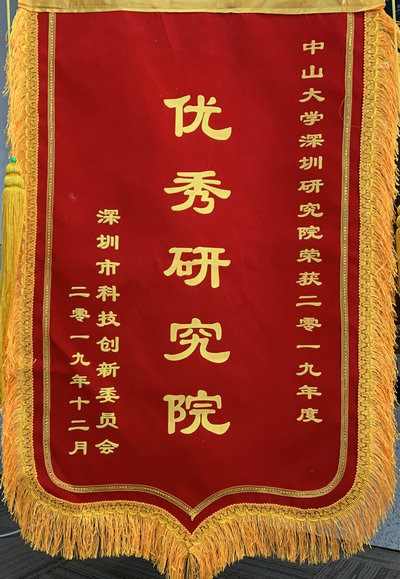 中山大学深圳研究院荣获二零一九年度
优秀研究院
深圳市科技创新委员会
二零一九年十二月